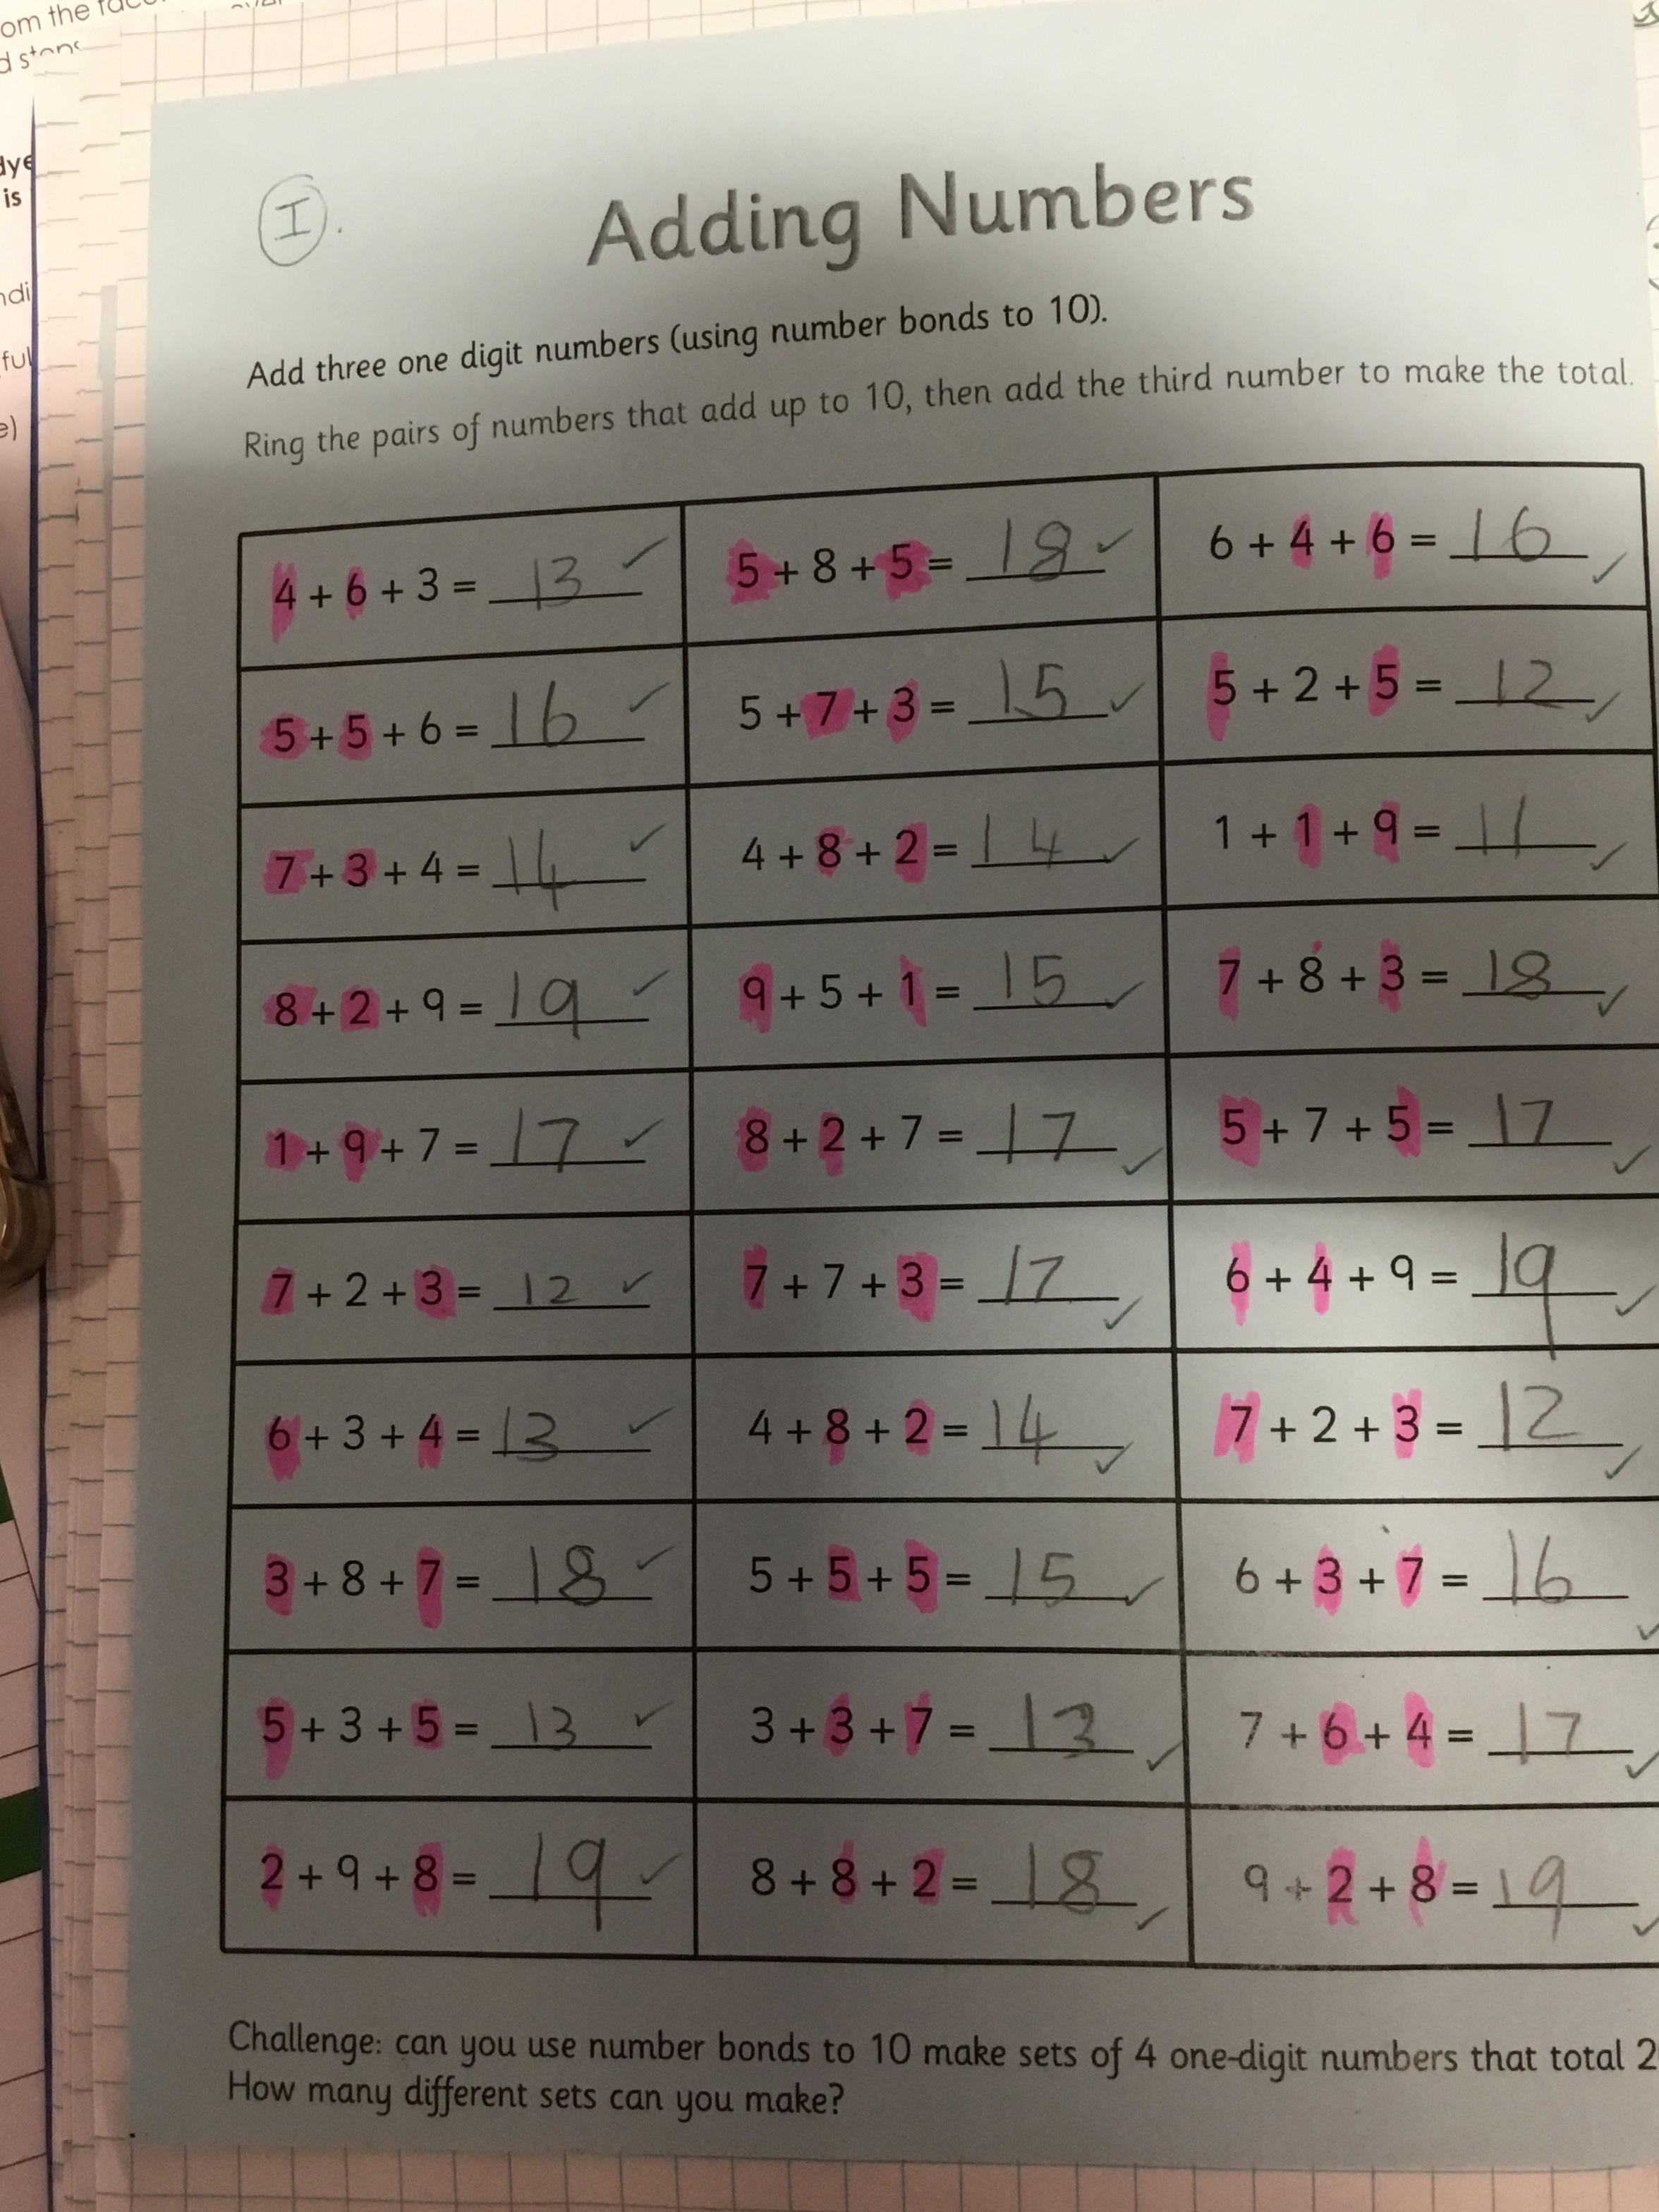 om the
is
ful
e)
I.
Adding Numbers
Add three one digit numbers (using number bonds to 10).
Ring the pairs of numbers that add up to 10, then add the third number to make the total.
4 + 6 + 3 = 13 ✓ 5 + 8 + 5 = 18 ✓ 6 + 4 + 6 = 16 ✓
5 + 5 + 6 = 16 ✓ 5 + 7 + 3 = 15 ✓ 5 + 2 + 5 = 12 ✓
7 + 3 + 4 = 14 ✓ 4 + 8 + 2 = 14 ✓ 1 + 1 + 9 = 11 ✓
8 + 2 + 9 = 19 ✓ 9 + 5 + 1 = 15 ✓ 7 + 8 + 3 = 18 ✓
1 + 9 + 7 = 17 ✓ 8 + 2 + 7 = 17 ✓ 5 + 7 + 5 = 17 ✓
7 + 2 + 3 = 12 ✓ 7 + 7 + 3 = 17 ✓ 6 + 4 + 9 = 19 ✓
6 + 3 + 4 = 13 ✓ 4 + 8 + 2 = 14 ✓ 7 + 2 + 3 = 12 ✓
3 + 8 + 7 = 18 ✓ 5 + 5 + 5 = 15 ✓ 6 + 3 + 7 = 16 ✓
5 + 3 + 5 = 13 ✓ 3 + 3 + 7 = 13 ✓ 7 + 6 + 4 = 17 ✓
2 + 9 + 8 = 19 ✓ 8 + 8 + 2 = 18 ✓ 9 + 2 + 8 = 19 ✓
Challenge: can you use number bonds to 10 make sets of 4 one-digit numbers that total 2
How many different sets can you make?